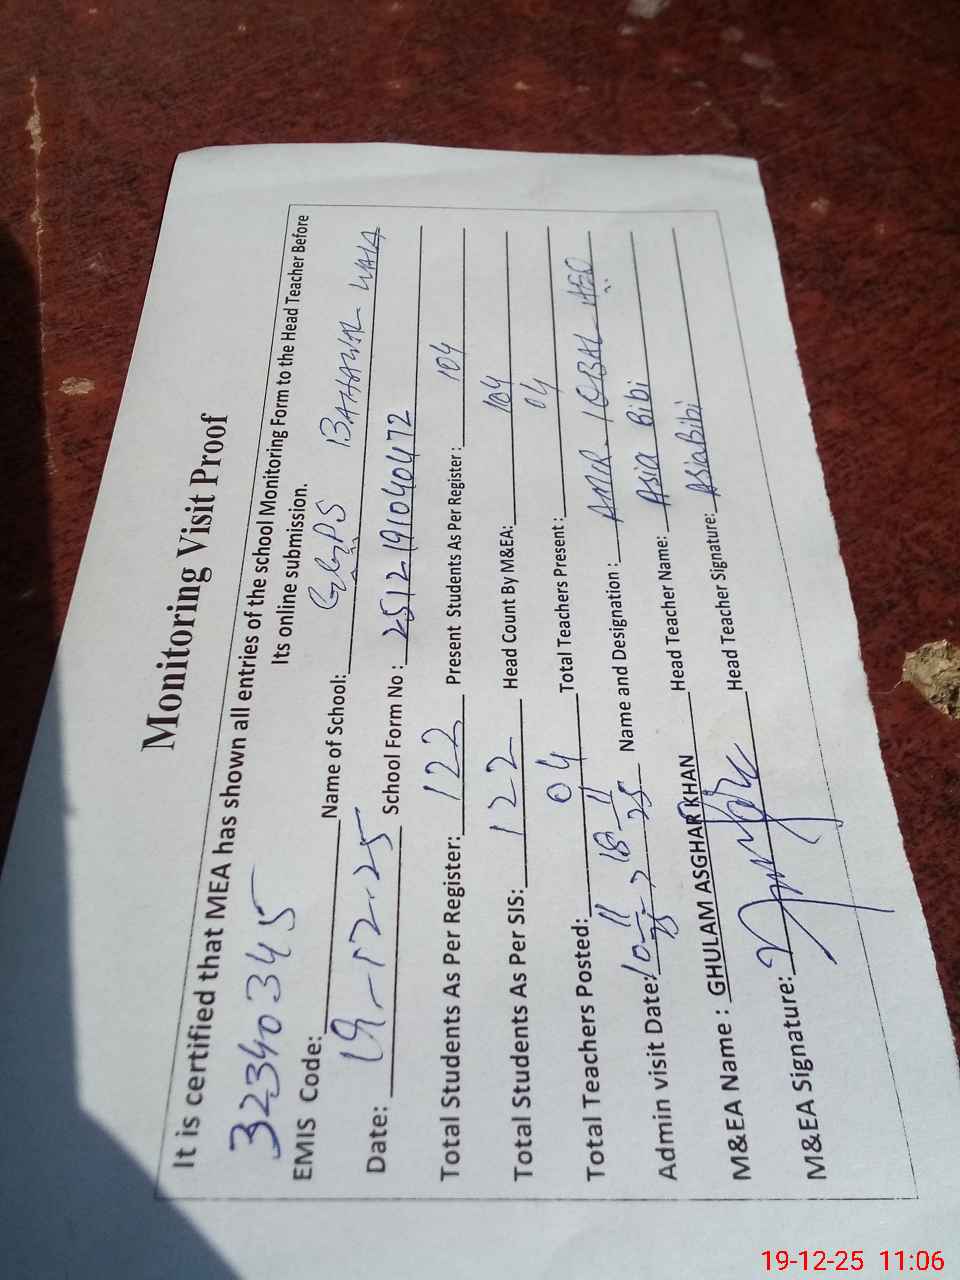 Monitoring Visit Proof
It is certified that MEA has shown all entries of the school Monitoring Form to the Head Teacher Before
Its online submission.
EMIS Code: 32340345 Name of School: GGPS BAHAWAL WALA
Date: 19-12-25 School Form No : 2512191040472
Total Students As Per Register: 122 Present Students As Per Register : 104
Total Students As Per SIS: 122 Head Count By M&EA: 104
Total Teachers Posted: 04 Total Teachers Present : 04
Admin visit Date: 10-11-25, 18-11-25 Name and Designation : AMIR IQBAL AEO
M&EA Name : GHULAM ASGHAR KHAN Head Teacher Name: Asia Bibi
M&EA Signature: Head Teacher Signature: Asia Bibi
19-12-25 11:06